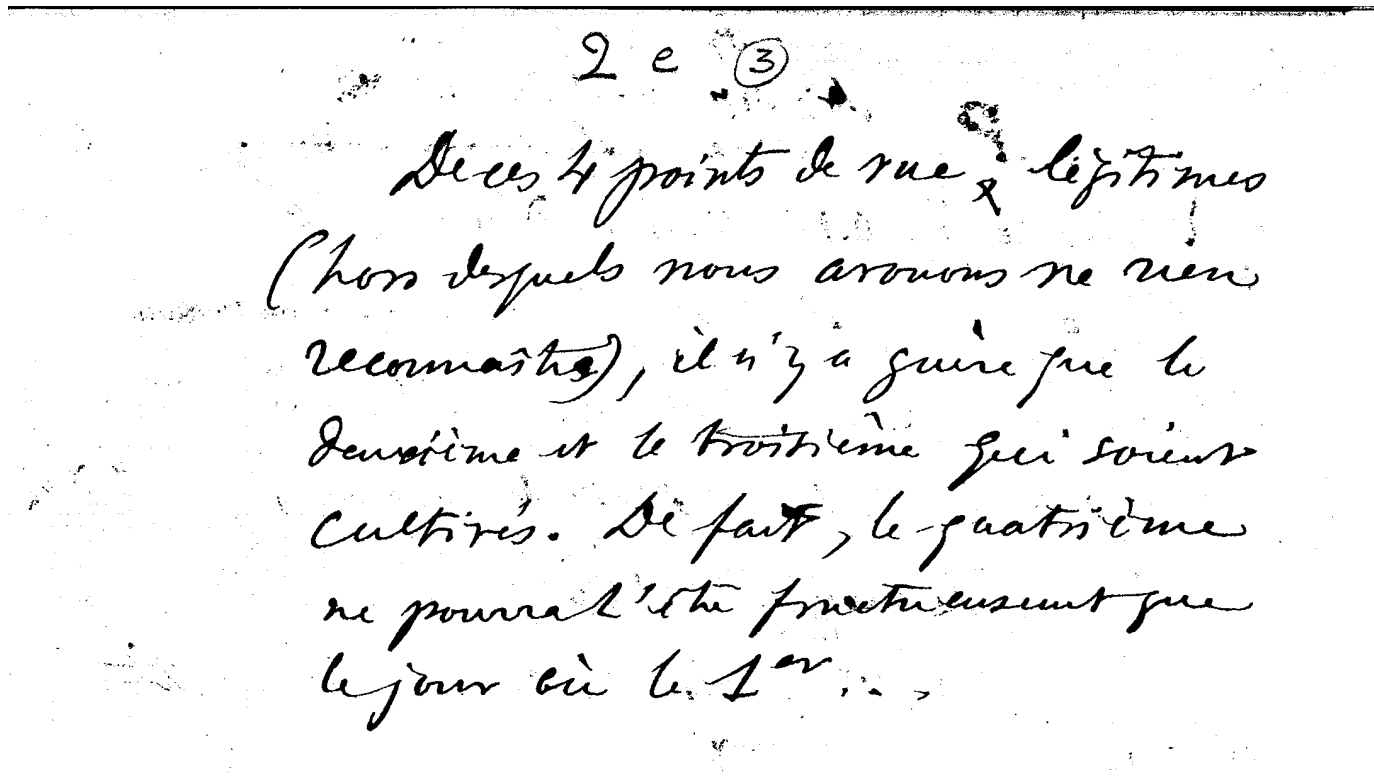 2 e ③
De ces 4 points de vue légitimes
(hors desquels nous avouons ne rien
reconnaître), il n'y a guère que le
deuxième et le troisième qui soient
cultivés. De fait, le quatrième
ne pourra l'être fructueusement que
le jour où le 1er ...